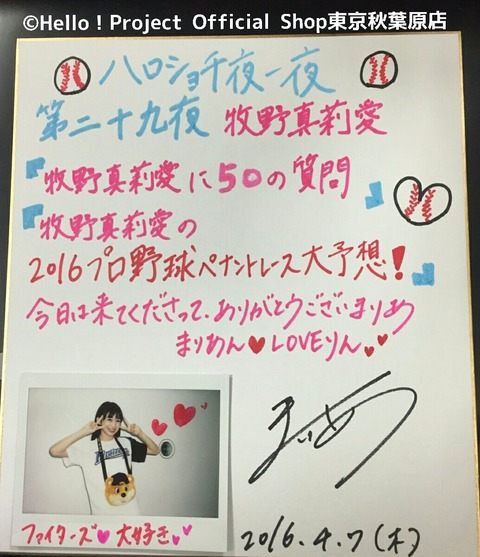 ©Hello！Project Official Shop東京秋葉原店
ハロショ千夜一夜
第二十九夜 牧野真莉愛
『牧野真莉愛に50の質問』
『牧野真莉愛の
2016プロ野球ペナントレース大予想!』
今日は来てくださって、ありがとうございまりあ
まりあん♥LOVEりん♥♥
まりあ
ファイターズ♥大好き♥♥
2016.4.7(木)